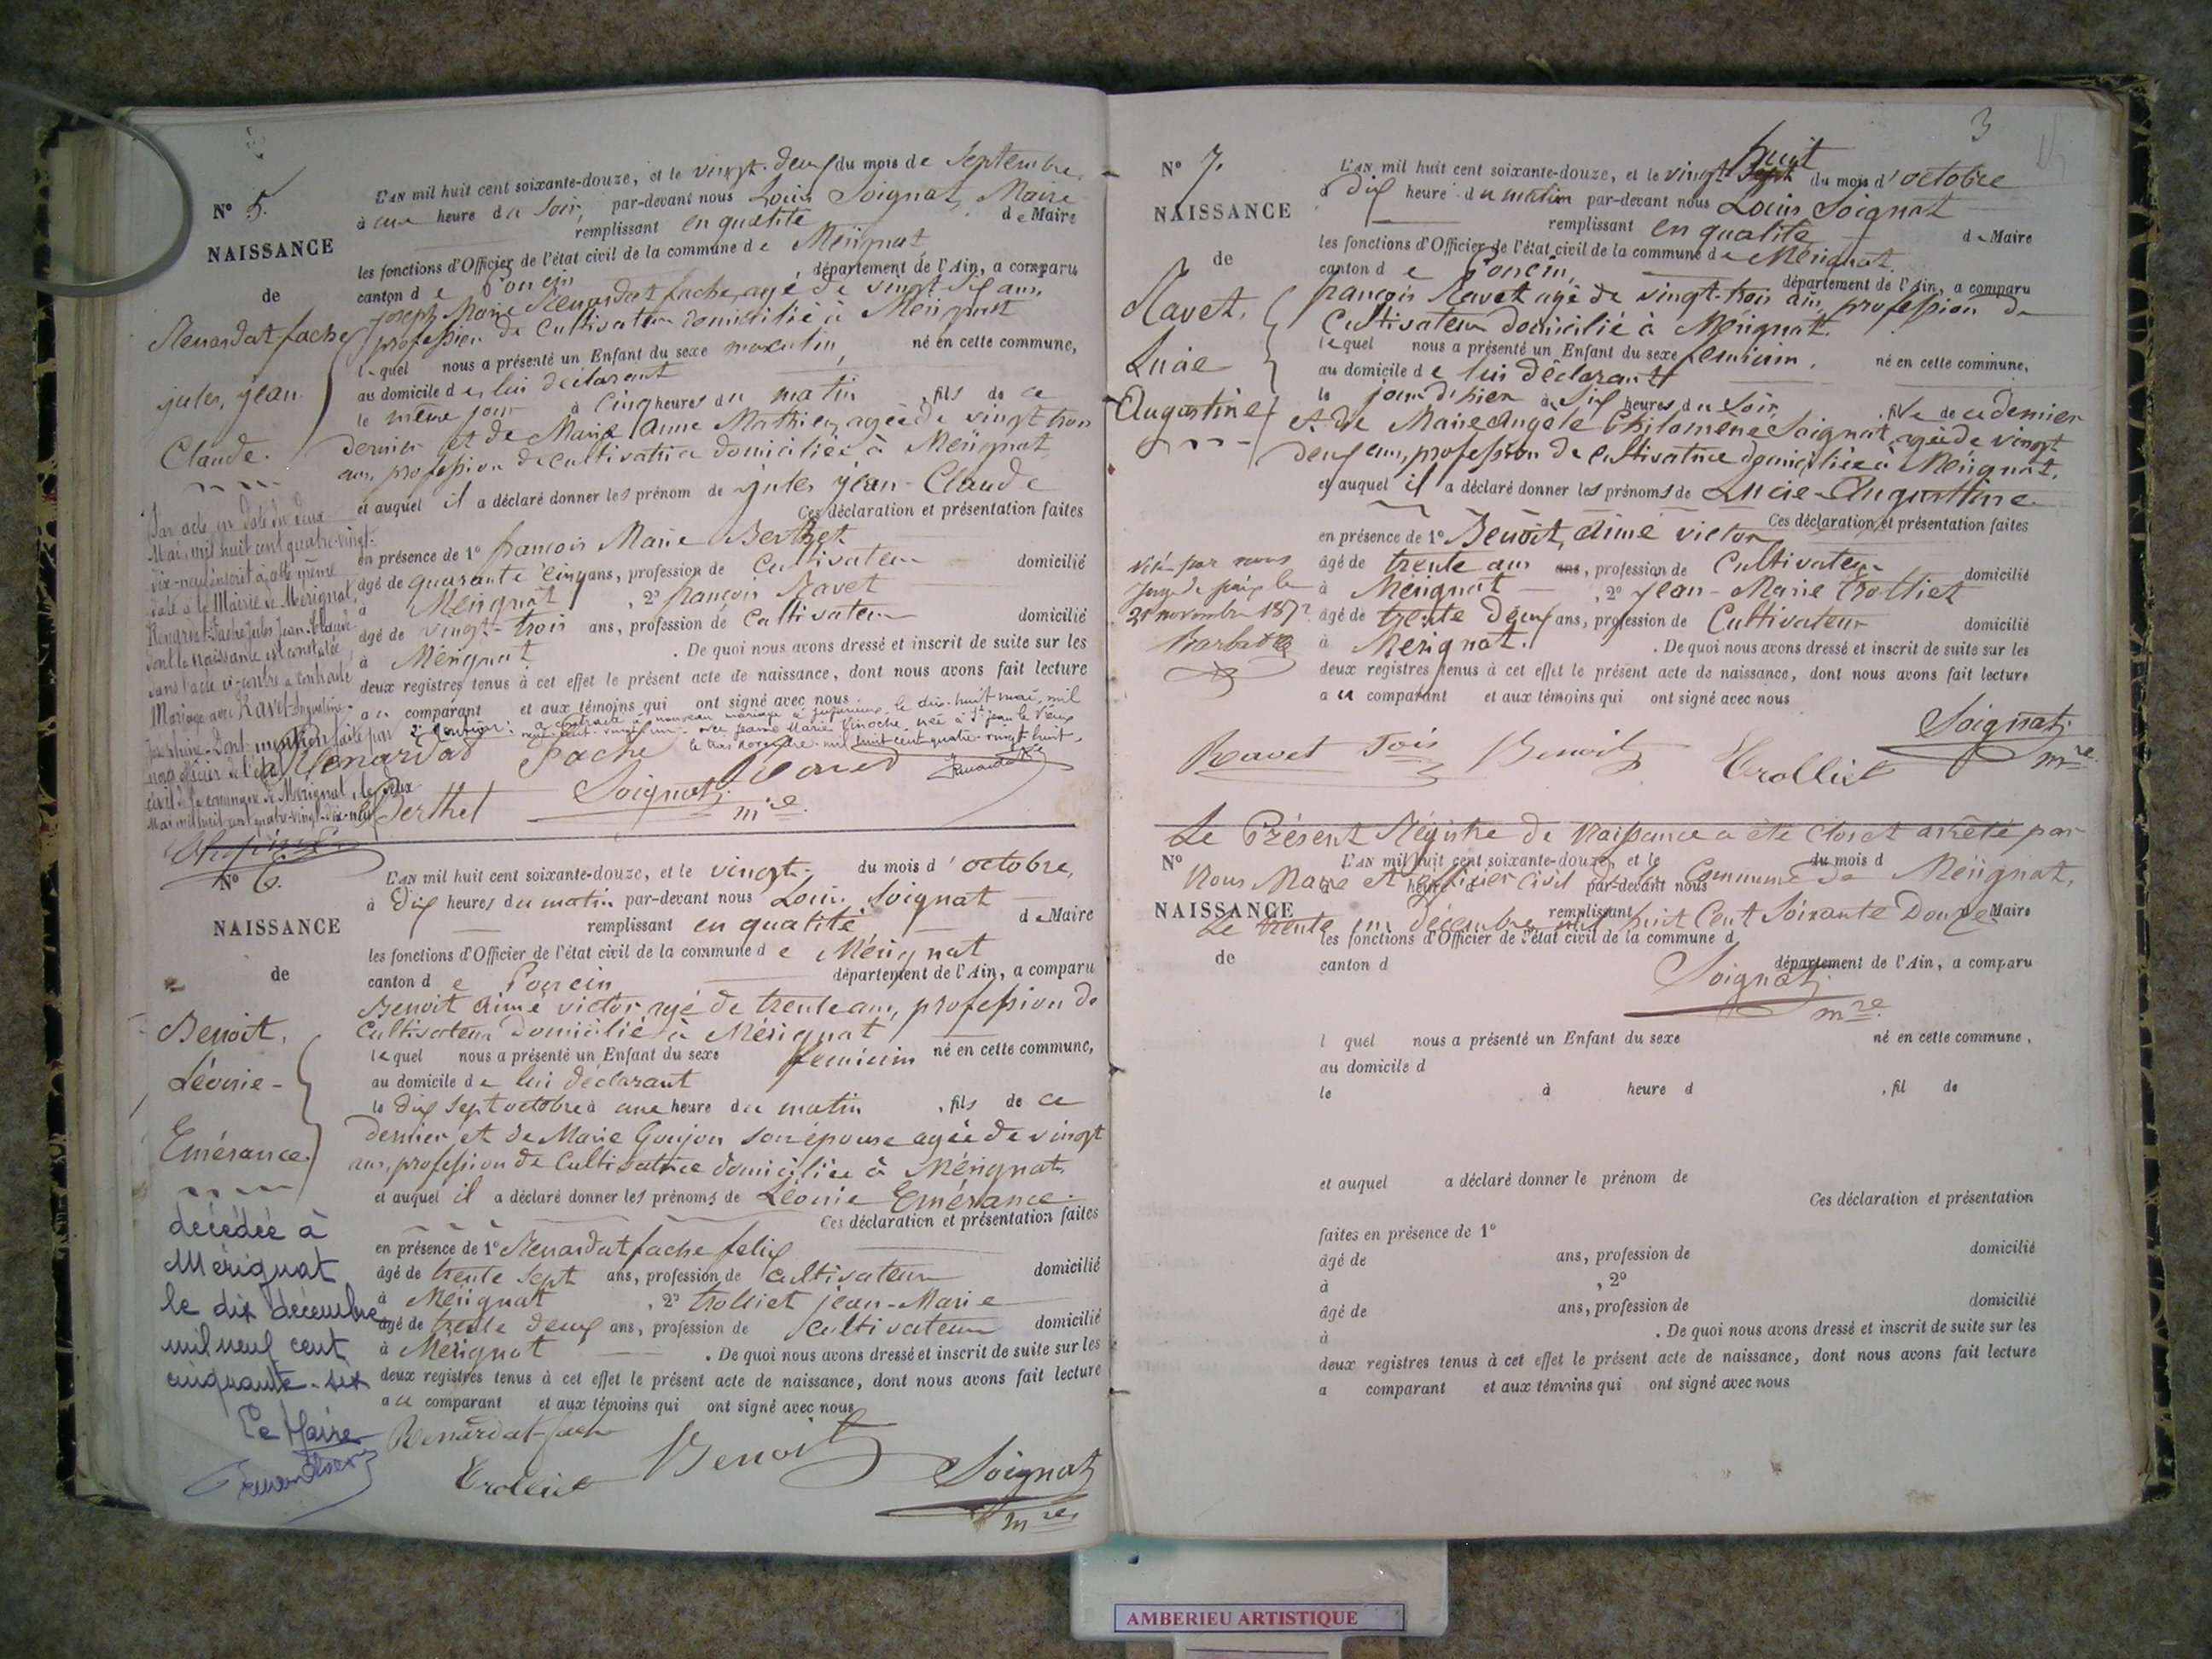 N° 5.
NAISSANCE
de
Renardat fache
jules, jean
Claude.
L'AN mil huit cent soixante-douze, et le vingt-deux du mois de Septembre
à une heure du Soir, par-devant nous Louis Soignat, Maire
remplissant en qualité de Maire
les fonctions d'Officier de l'état civil de la commune de Mérignat
canton de Poncin, département de l'Ain, a comparu
joseph Marie Renardat fache, agé de vingt six ans,
profession de Cultivateur domicilié à Mérignat
lequel nous a présenté un Enfant du sexe masculin, né en cette commune,
au domicile de lui déclarant
le même jour à Cinq heures du matin, fils de ce
dernier et de Marie Anne Mathieu, agée de vingt trois
ans, profession de cultivatrice domiciliée à Mérignat
et auquel il a déclaré donner les prénom de jules jean-Claude
Ces déclaration et présentation faites
en présence de 1° françois Marie Berthet
âgé de quarante cinq ans, profession de Cultivateur domicilié
à Mérignat, 2° françois Ravet
âgé de vingt-trois ans, profession de Cultivateur domicilié
à Mérignat. De quoi nous avons dressé et inscrit de suite sur les
deux registres tenus à cet effet le présent acte de naissance, dont nous avons fait lecture
au comparant et aux témoins qui ont signé avec nous
Par acte en date du deux
Mai mil huit cent quatre-vingt-
dix-neuf inscrit à cette même
date à la Mairie de Mérignat,
Renardat-Fache Jules Jean-Claude
dont la naissance est constatée
dans l'acte ci-contre a contracté
Mariage avec Ravet Augustine
Joséphine. Dont mention faite par
nous officier de l'état
civil de la commune de Mérignat, le deux
Mai mil huit cent quatre-vingt-dix-neuf
a contracté à nouveau mariage à Jujurieux, le dix-huit mai mil
neuf cent vingt un avec Jeanne Marie Vinoche, née à St jean le Vieux
le trois novembre mil huit cent quatre-vingt huit
Renardat Fache
Ravet
Berthet
Soignat
mre
N° 6.
NAISSANCE
de
Benoit,
Léonie-
Emérance.
L'AN mil huit cent soixante-douze, et le vingt du mois d'octobre,
à Dix heures du matin par-devant nous Louis Soignat
remplissant en qualité de Maire
les fonctions d'Officier de l'état civil de la commune de Mérignat
canton de Poncin département de l'Ain, a comparu
Benoit aimé victor agé de trente ans, profession de
Cultivateur domicilié à Mérignat,
lequel nous a présenté un Enfant du sexe feminim né en cette commune,
au domicile de lui déclarant
le dix sept octobre à une heure du matin, fils de ce
dernier et de Marie Goujon son épouse agée de vingt
ans, profession de Cultivatrice domiciliée à Mérignat
et auquel il a déclaré donner les prénoms de Léonie Emérance.
Ces déclaration et présentation faites
en présence de 1° Renardat fache felix
âgé de trente sept ans, profession de cultivateur domicilié
à Mérignat, 2° trolliet jean-Marie
âgé de trente deux ans, profession de cultivateur domicilié
à Mérignat. De quoi nous avons dressé et inscrit de suite sur les
deux registres tenus à cet effet le présent acte de naissance, dont nous avons fait lecture
au comparant et aux témoins qui ont signé avec nous
décédée à
Mérignat
le dix décembre
mil neuf cent
cinquante-six
Le Maire
Renardat-fache
Trolliet
Benoit
Soignat
mre
3
N° 7.
NAISSANCE
de
Ravet,
Lucie
Augustine
huit
L'AN mil huit cent soixante-douze, et le vingt sept du mois d'octobre
à Dix heure du matin par-devant nous Louis Soignat
remplissant en qualité de Maire
les fonctions d'Officier de l'état civil de la commune de Mérignat.
canton de Poncin, département de l'Ain, a comparu
françois Ravet agé de vingt-trois ans, profession de
Cultivateur domicilié à Mérignat.
lequel nous a présenté un Enfant du sexe feminim, né en cette commune,
au domicile de lui déclarant
le jour d'hier à Six heures du Soir, fille de ce dernier
et de Marie Angèle Philomène Soignat, agée de vingt
deux ans, profession de cultivatrice domiciliée à Mérignat.
et auquel il a déclaré donner les prénoms de Lucie-Augustine
Ces déclaration et présentation faites
en présence de 1° Benoit, aimé victor
âgé de trente ans ans, profession de Cultivateur domicilié
à Mérignat, 2° Jean-Marie Trolliet
âgé de trente deux ans, profession de Cultivateur domicilié
à Mérignat. De quoi nous avons dressé et inscrit de suite sur les
deux registres tenus à cet effet le présent acte de naissance, dont nous avons fait lecture
au comparant et aux témoins qui ont signé avec nous
Vu par nous
juge de paix le
21 novembre 1872
Ravet fois
Benoit
Trolliet
Soignat
mre
Le Présent Régistre de Naissance a été Clos et arrêté par
Nous Maire et officier Civil de la Commune de Mérignat,
Le trente un Décembre mil huit Cent Soixante Douze
Soignat
mre
N°
NAISSANCE
de
L'AN mil huit cent soixante-douze, et le du mois d
à heure d par-devant nous
remplissant Maire
les fonctions d'Officier de l'état civil de la commune d
canton d département de l'Ain, a comparu
l quel nous a présenté un Enfant du sexe né en cette commune,
au domicile d
le à heure d , fil de
et auquel a déclaré donner le prénom de
Ces déclaration et présentation
faites en présence de 1°
âgé de ans, profession de domicilié
à , 2°
âgé de ans, profession de domicilié
à . De quoi nous avons dressé et inscrit de suite sur les
deux registres tenus à cet effet le présent acte de naissance, dont nous avons fait lecture
a comparant et aux témoins qui ont signé avec nous
AMBERIEU ARTISTIQUE